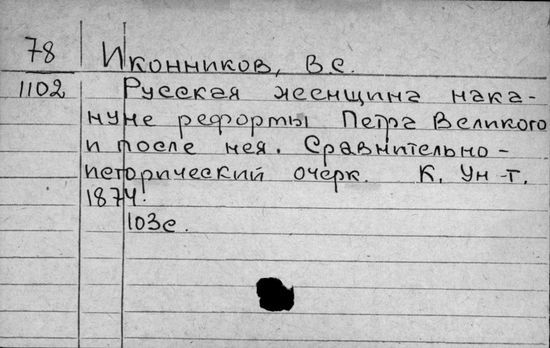 78 Иконников, В.С.
1102 Русская женщина нака-
нуне реформы Петра Великого
и после нея. Сравнительно-
исторический очерк. К. Ун-т.
1874.
103с.